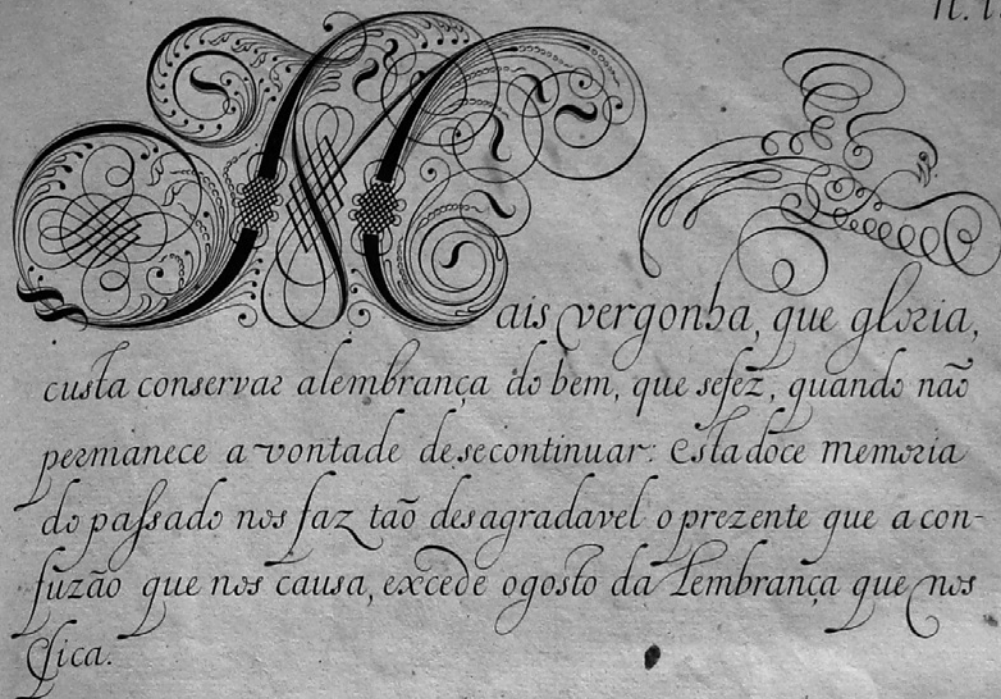 Mais vergonha, que gloria,
custa conservar alembrança do bem, que sefez, quando não
permanece a vontade desecontinuar: Esta doce memoria
do passado nos faz tão desagradavel o prezente que a con-
fuzão que nos causa, excede ogosto da Lembrança que nos
fica.